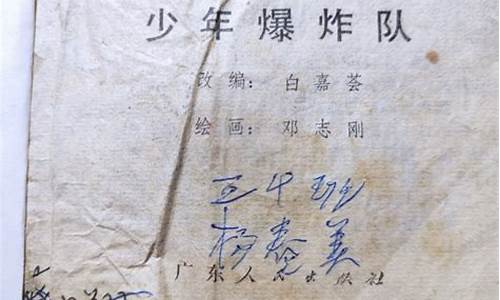 少年爆炸队
改编：白嘉荟
绘画：邓志刚
五年班
杨春美
广东人民出版社